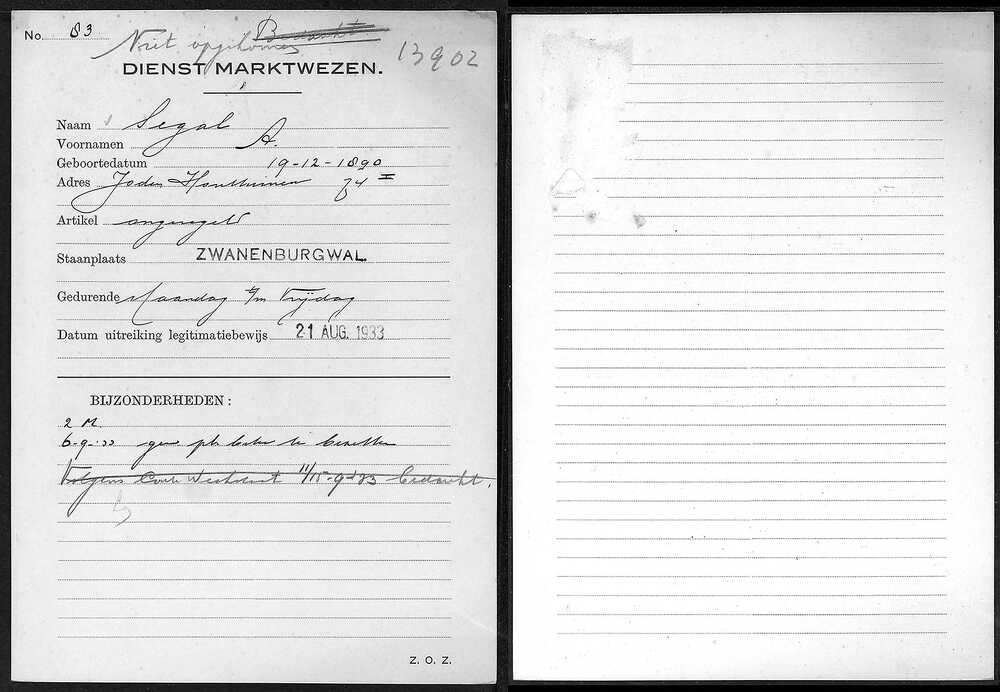 No. 83
Bedankt.
Niet opgekomen
13902
DIENST MARKTWEZEN.
Naam Segal
Voornamen A.
Geboortedatum 19-12-1890
Adres Joden Houttuinen 74 II
Artikel ongeregeld
Staanplaats ZWANENBURGWAL.
Gedurende Maandag t/m Vrijdag
Datum uitreiking legitimatiebewijs 21 AUG. 1933
BIJZONDERHEDEN:
2 M.
6-9-33 geen pl. te bezetten
Volgens 11/15-9-'33 bedankt.
Z. O. Z.